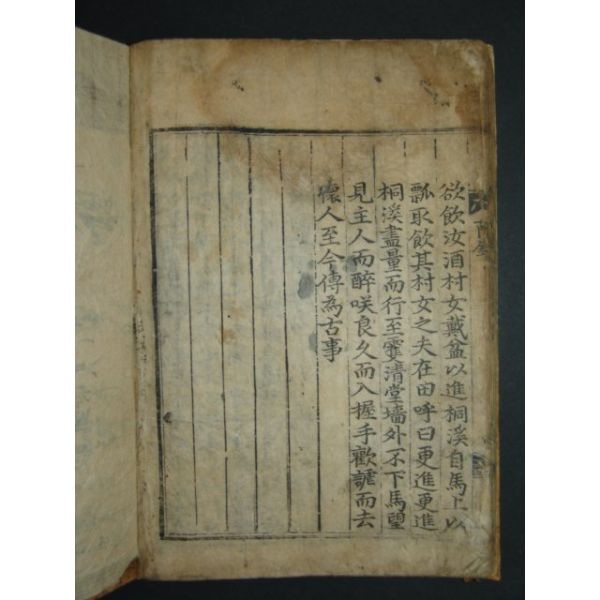 欲飲汝酒村女戴盆以進桐溪自馬上以
瓢取飲其村女之夫在田呼曰更進更進
桐溪盡量而行至霽清堂墻外不下馬望
見主人而醉咲良久而入握手歡謔而去
懷人至今傳為古事